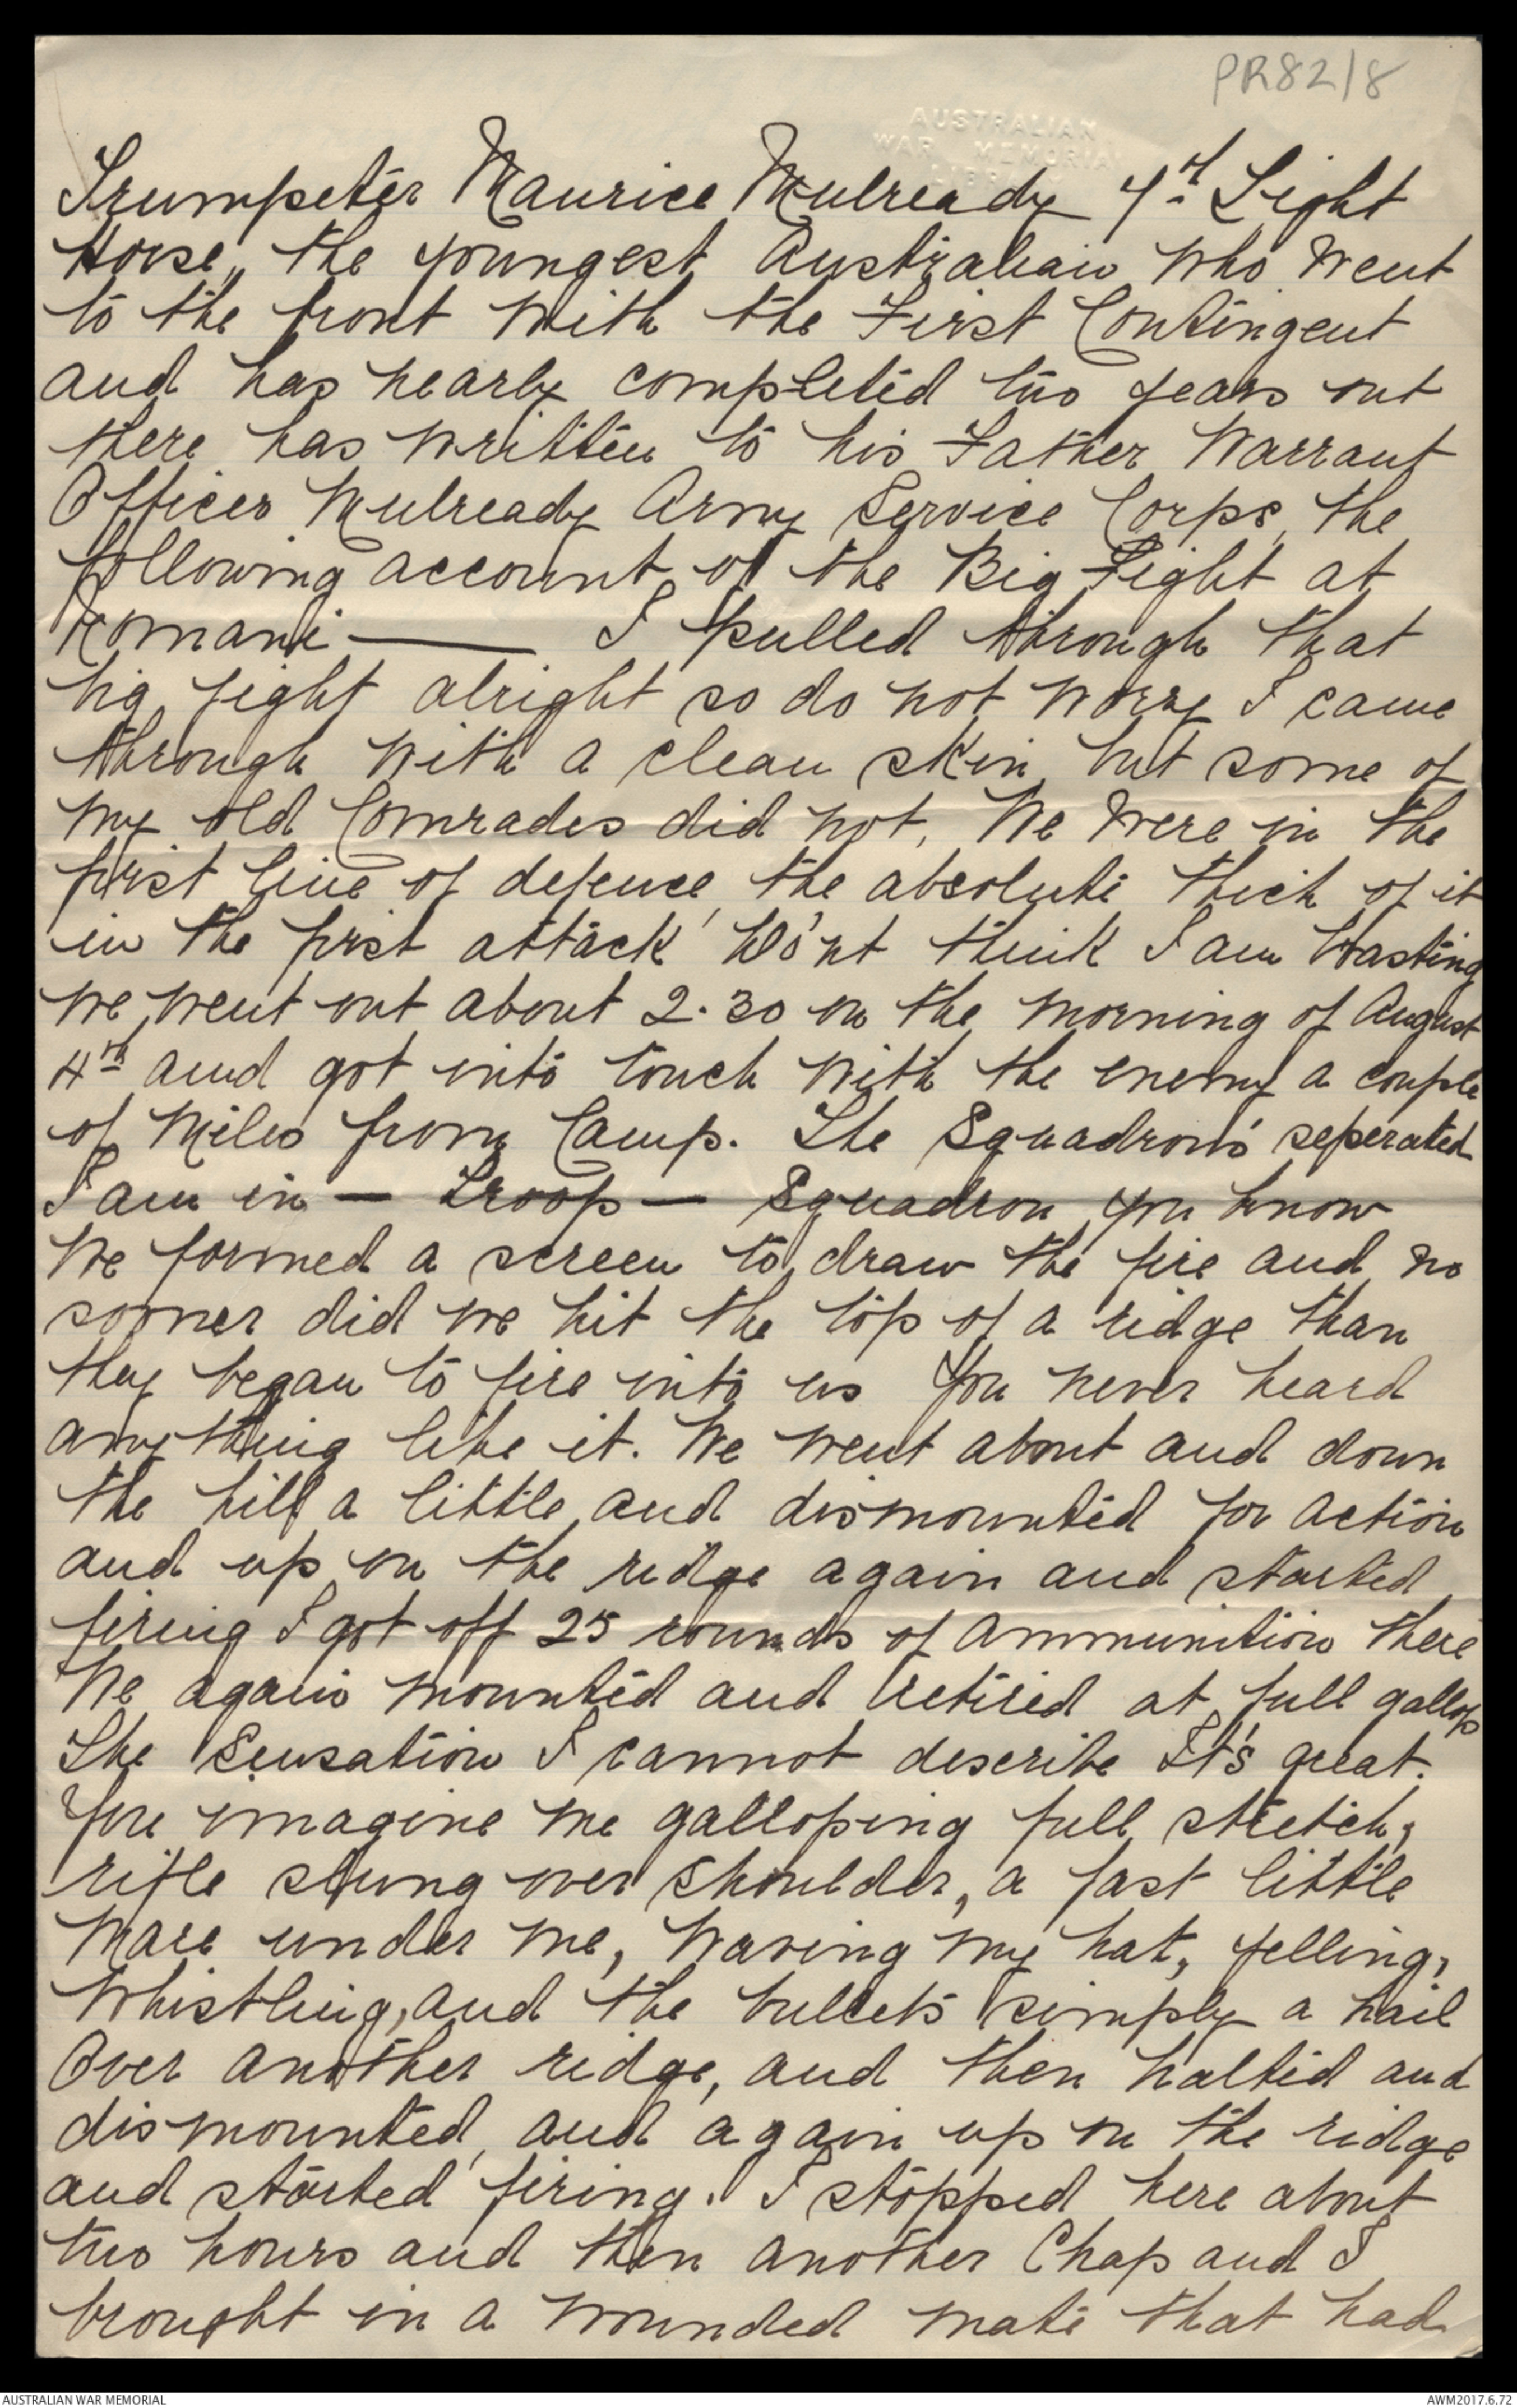 PR82/8
AUSTRALIAN
WAR MEMORIAL
Trumpeter Maurice Mulready 7th Light
Horse, the youngest Australian who went
to the front with the First Contingent
and has nearly completed two years out
there has written to his Father Warrant
Officer Mulready Army Service Corps, the
following account of the Big Fight at
Romani —— I pulled through that
big fight alright so do not worry I came
through with a clean skin, but some of
my old Comrades did not. We were in the
first line of defence, the absolute thick of it
in the first attack Do'nt think I am boasting
we went out about 2.30 on the morning of August
4th and got into touch with the enemy a couple
of miles from Camp. The Squadron's seperated
I am in — Troop — Squadron you know
We formed a screen to draw the fire and no
sooner did we hit the top of a ridge than
they began to fire into us You never heard
anything like it. We went about and down
the hill a little and dismounted for action
and up on the ridge again and started
firing I got off 25 rounds of ammunition there
We again mounted and retired at full gallop
The sensation I cannot describe It's great.
You imagine me galloping full stretch,
rifle slung over shoulder, a fast little
mare under me, waving my hat, yelling,
whistling, and the bullets simply a hail
Over another ridge, and then halted and
dismounted, and again up on the ridge
and started firing. I stopped here about
two hours and then another Chap and I
brought in a wounded mate that had
AUSTRALIAN WAR MEMORIAL
AWM2017.6.72